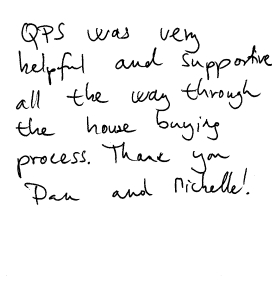 QPS was very
helpful and supportive
all the way through
the house buying
process. Thank you
Dan and Michelle!